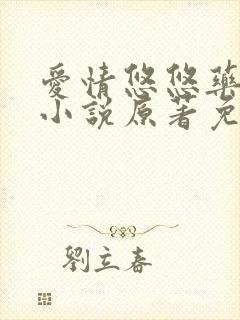 愛情悠悠藥
小說原著免
劉立春